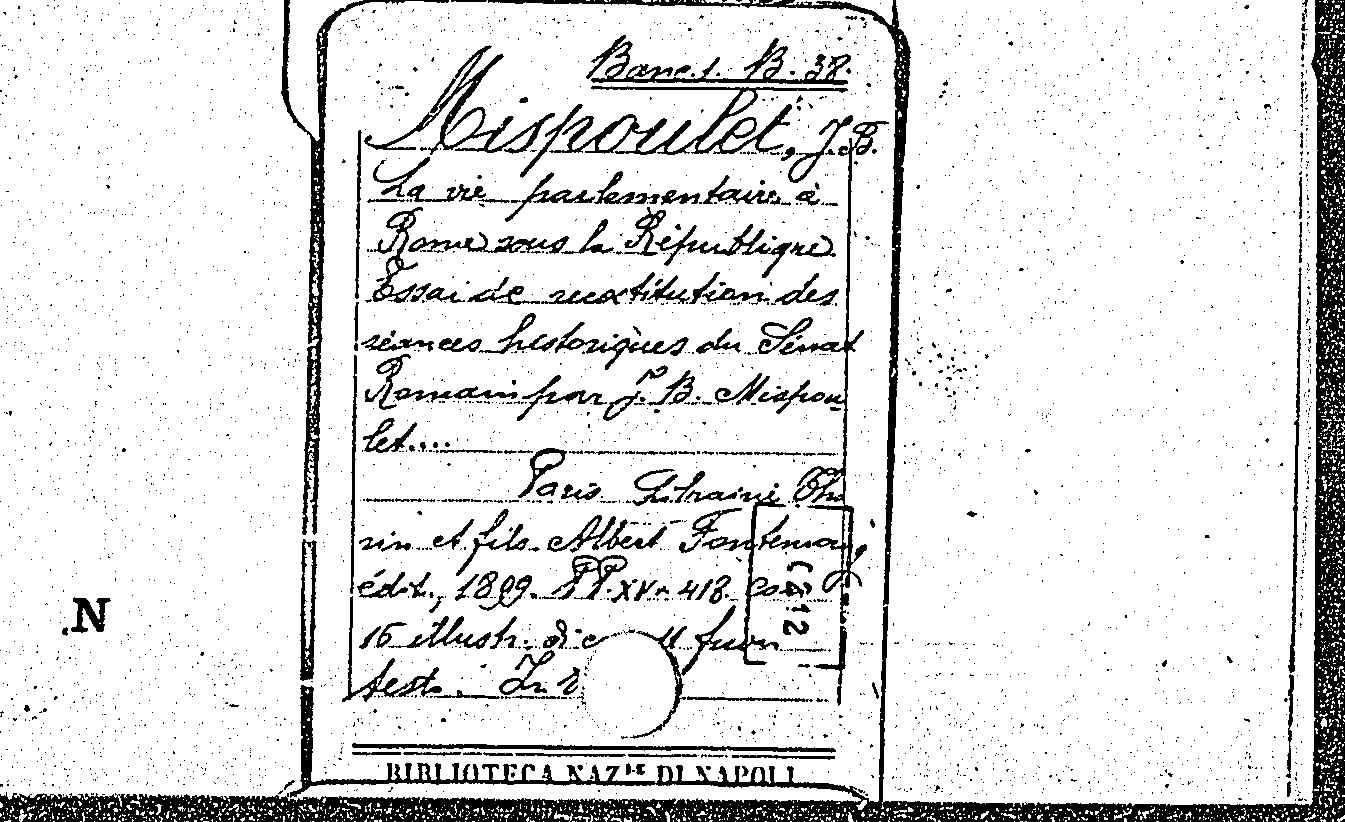 Banc. 1. B. 38.
Mispoulet, J. B.
La vie parlementaire à
Rome sous la République.
Essai de recostitution des
séances historiques du Sénat
Romain par J. B. Mispou-
let....
Paris Librairie Tho
rin et fils Albert Fontemoing
édit., 1899. PP. XV-418. con
16 illustr. di c 11 fuori
test. In
(212
N
BIBLIOTECA NAZ.LE DI NAPOLI